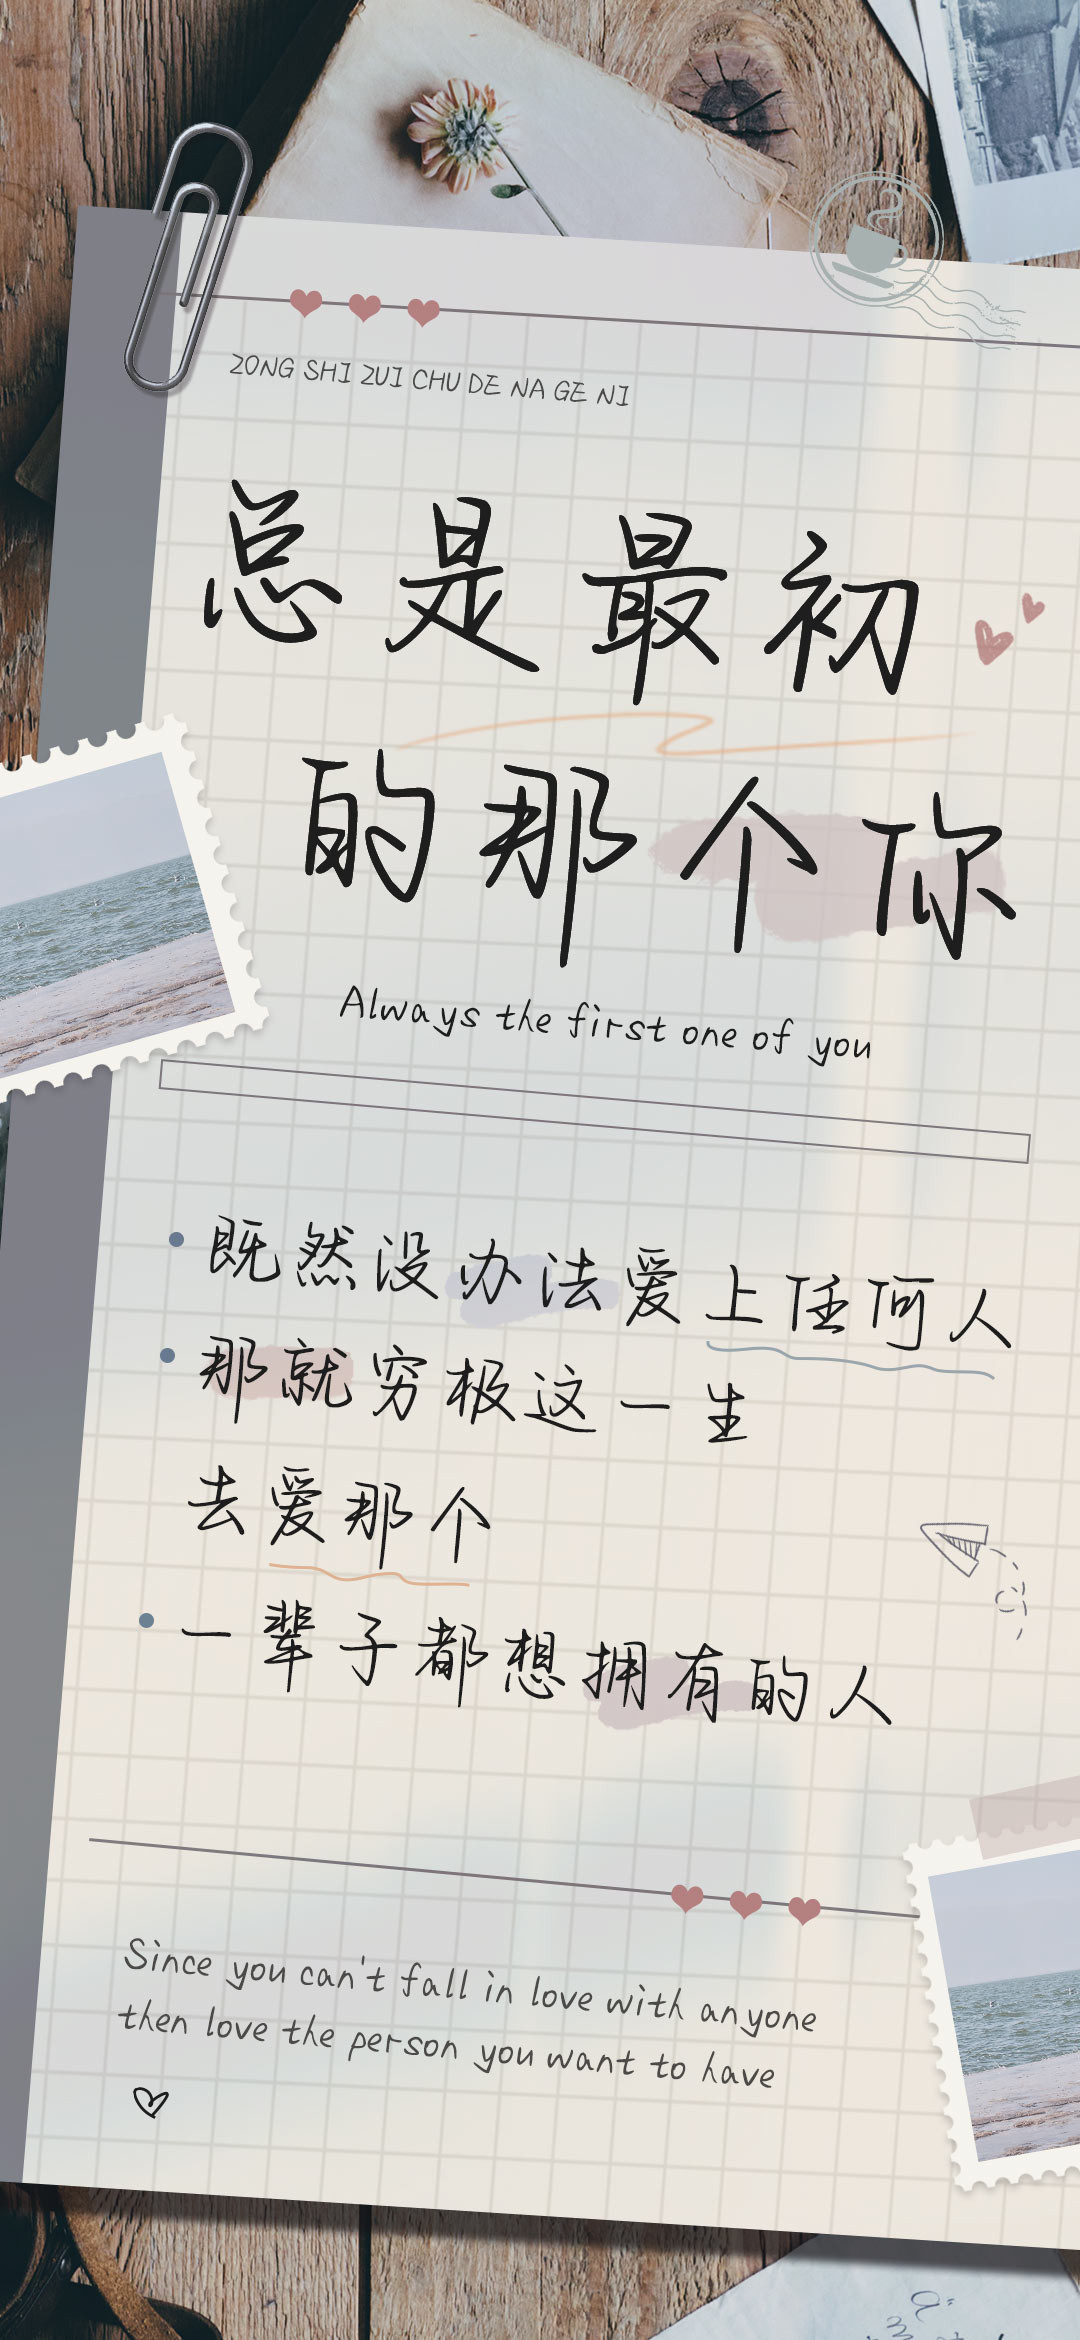 ZONG SHI ZUI CHU DE NA GE NI
总是最初
的那个你
Always the first one of you
既然没办法爱上任何人
那就穷极这一生
去爱那个
一辈子都想拥有的人
Since you can't fall in love with anyone
then love the person you want to have